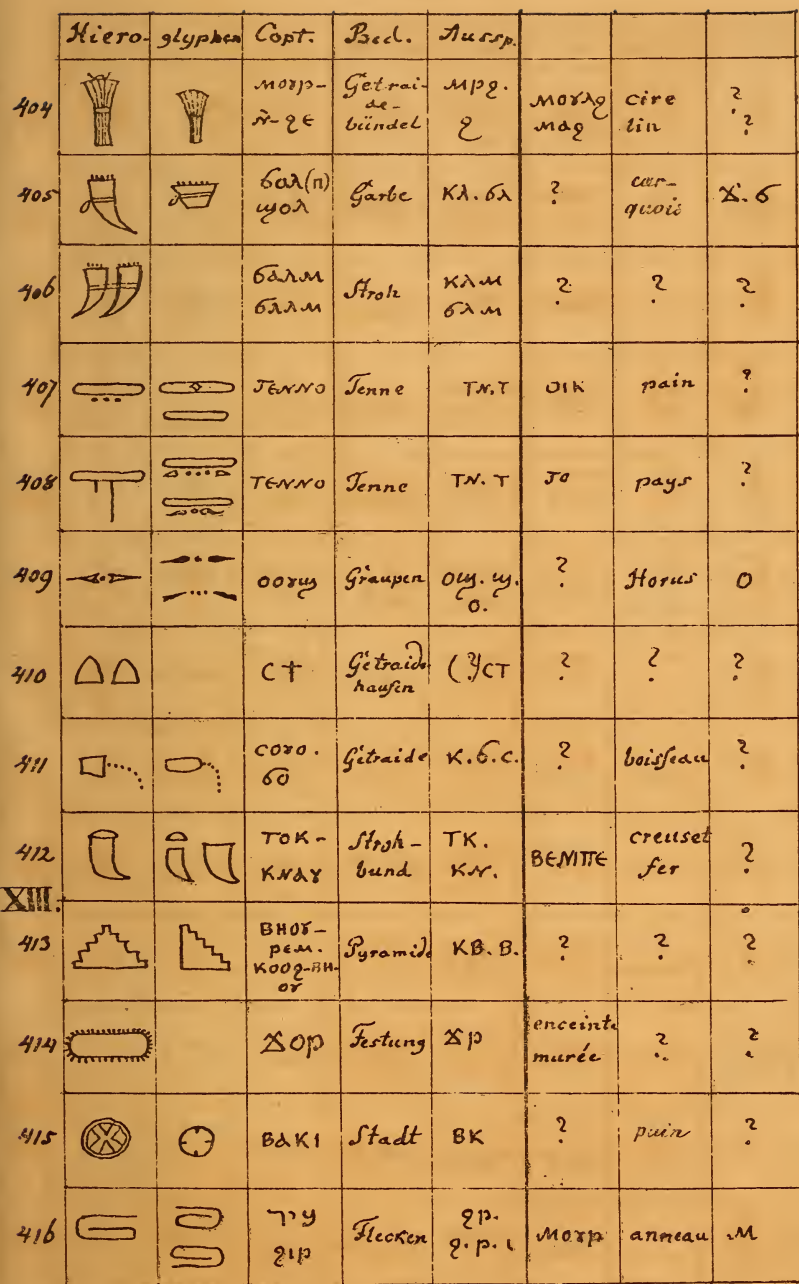 Hiero- glyphen Copt. Bed. Aussp.
404 ⲙⲟⲩⲣ- ⲛ̀-ϩⲉ Getrai-de-bündel ⲙⲣϩ. ϩ ⲙⲟⲩⲗϩ ⲙⲁϩ cire lin ? ?
405 ϭⲁⲗ(ⲡ) ϣⲟⲗ Garbe ⲕⲗ. ϭⲗ ? car-quois ϫ. ϭ
406 ϭⲁⲗⲙ ϭⲗⲗⲙ Stroh ⲕⲗⲙ ϭⲗⲙ ? ? ?
407 ⲧⲉⲛⲛⲟ Tenne ⲧⲛ.ⲧ ⲟⲓⲕ pain ?
408 ⲧⲉⲛⲛⲟ Tenne ⲧⲛ.ⲧ ⲧⲟ pays ?
409 ⲟⲟⲩϣ Graupen ⲟϣ. ϣ. ⲟ. ? Horus ⲟ
410 ⲥϯ Getraide haufen (?)ⲥⲧ ? ? ?
411 ⲥⲟⲩⲟ. ϭⲟ Getraide ⲕ.ϭ.ⲥ. ? boisseau ?
412 ⲧⲟⲕ- ⲕⲛⲁⲩ Stroh-bund ⲧⲕ. ⲕⲛ. ⲃⲉⲛⲓⲡⲉ creuset fer ?
XIII.
413 ⲃⲏⲟⲩ- ⲣⲉⲙ. ⲕⲟⲟϩ-ⲃⲏ-ⲟⲩ Pyramide ⲕⲃ. ⲃ. ? ? ?
414 ϫⲟⲣ Festung ϫⲣ enceinte murée ? ?
415 ⲃⲁⲕⲓ Stadt ⲃⲕ ? pain ?
416 עיר ϩⲓⲣ Flecken ϩⲣ. ϩ.ⲣ.ⲓ ⲙⲟⲩⲣ anneau ⲙ